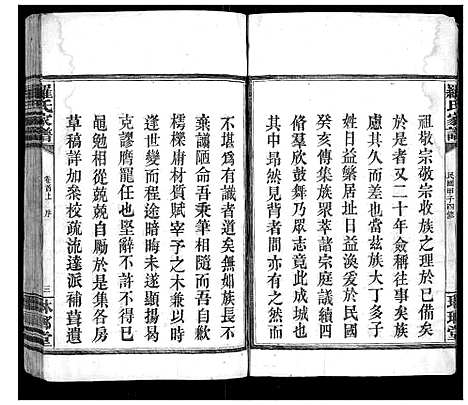 羅氏家譜
民國甲子四修
琳瑯堂
祖敬宗敬宗收族之理於已備矣
於是者又二十年僉稱往事矣族
慮其久而差也當茲族大丁多時
姓日益繁居址日益廣爰於民國
癸亥傳集眾萃諸宗庭議續四
脩脩欣鼓舞乃眾志竟以成城
其中昂然見宵者間亦有之然
不堪為有識者道矣無如族長不
棄謭陋命吾秉筆相從吾自歉
樗櫟庸材質賦宰予之木兼以時
逢世變而程途暗晦未遂顯揚易
克謬膺龐任也堅辭不許不得已
黽勉相從兢兢自勵已於各房
草稿詳加參校疏流達派補葺遺
羅氏家譜
卷首上 序
三
琳瑯堂